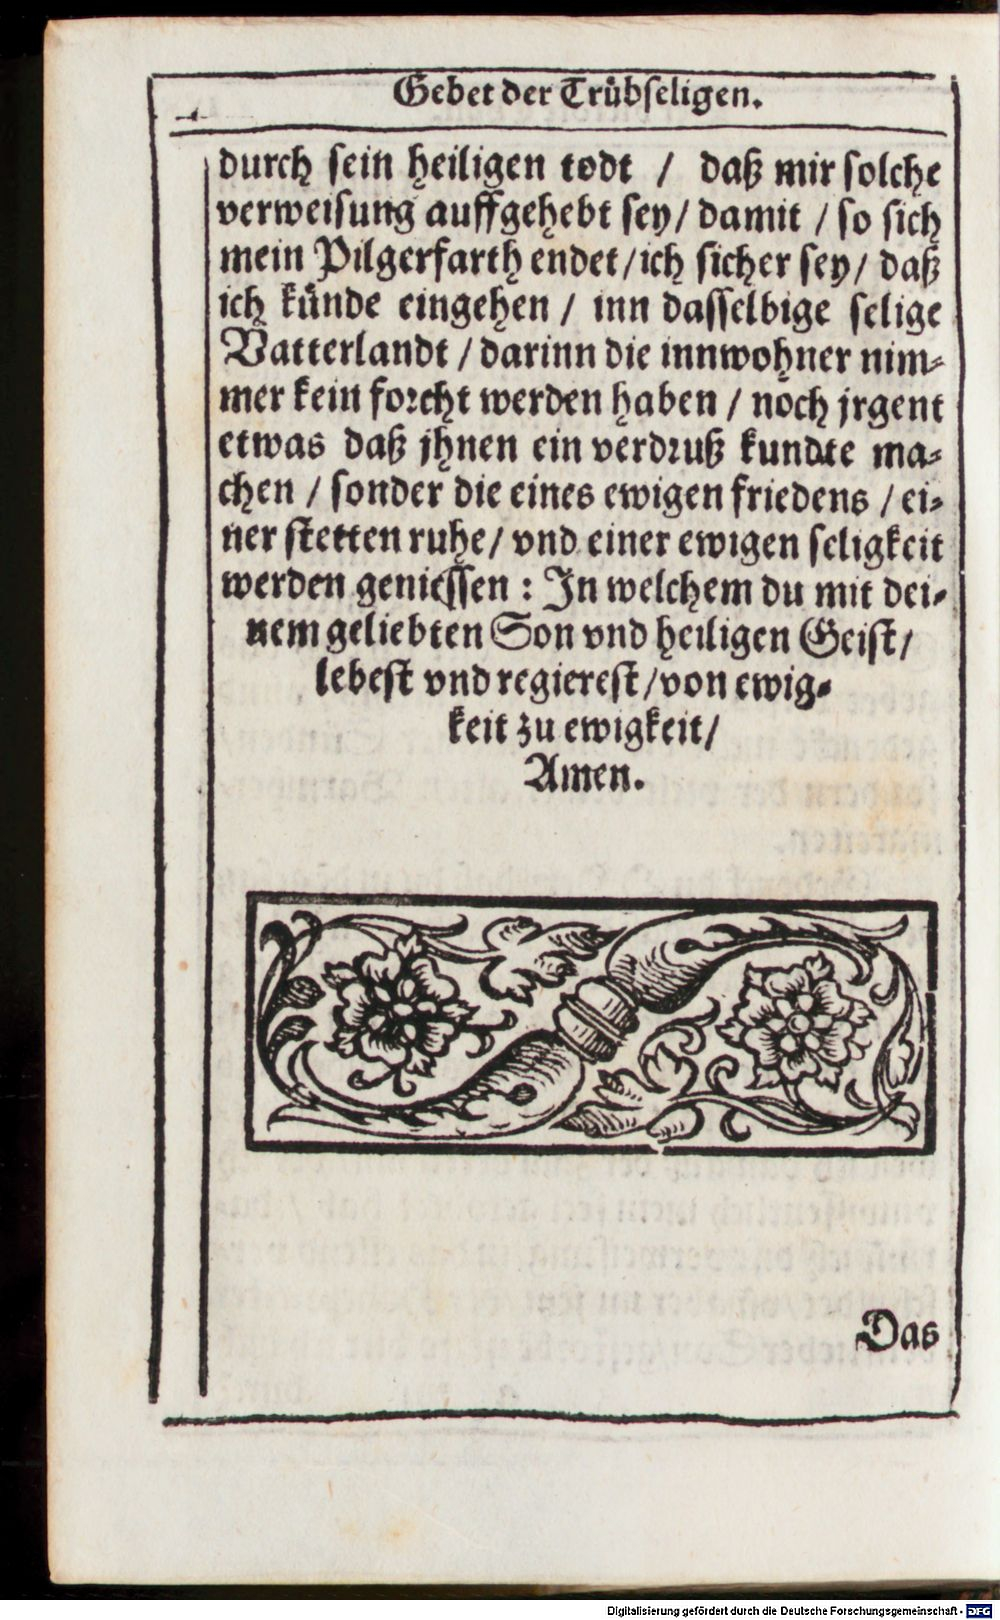 Gebet der Trübseligen.
durch sein heiligen todt / daß mir solche
verweisung auffgehebt sey / damit / so sich
mein Pilgerfarth endet / ich sicher sey / daß
ich künde eingehen / inn dasselbige selige
Vatterlandt / darinn die innwohner nim-
mer kein forcht werden haben / noch jrgent
etwas daß jhnen ein verdruß kundte ma-
chen / sonder die eines ewigen friedens / ei-
ner stetten ruhe / vnd einer ewigen seligkeit
werden geniessen : In welchem du mit dei-
nem geliebten Son vnd heiligen Geist /
lebest vnd regierest / von ewig-
keit zu ewigkeit /
Amen.
Das
Digitalisierung gefördert durch die Deutsche Forschungsgemeinschaft - DFG